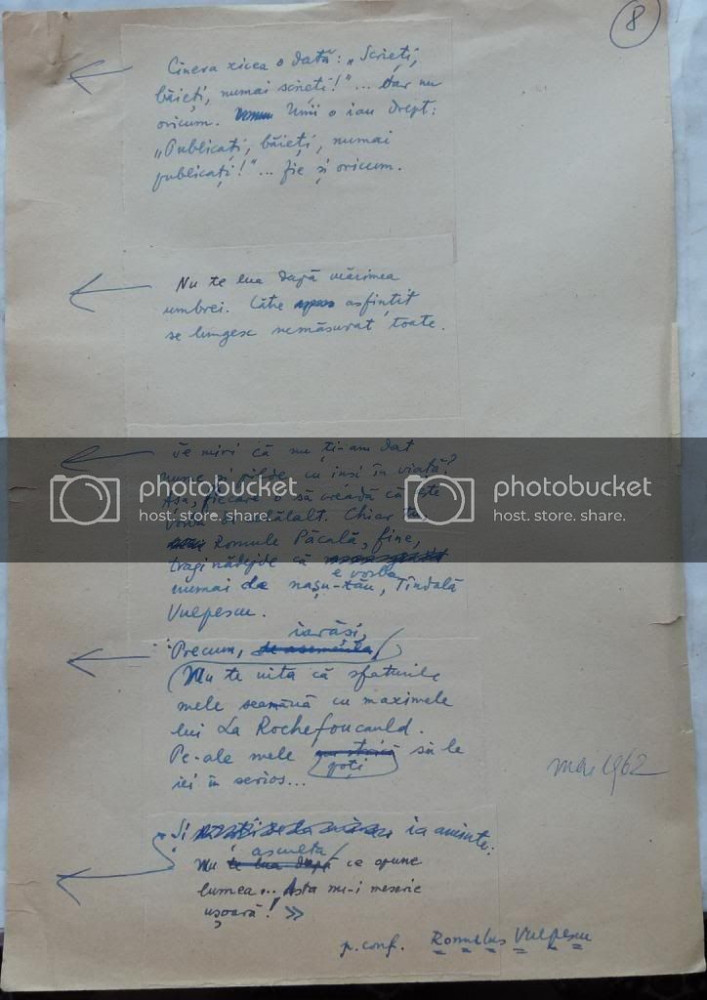 8
Cineva zicea o dată: „Scrieți,
băieți, numai scrieți!"... Dar nu
oricum. Unii o iau drept:
„Publicați, băieți, numai
publicați!"... fie și oricum.
Nu te lua după mărimea
umbrei. Către asfințit
se lungesc nemăsurat toate.
Te miri că nu ți-am dat
nume și pilde cu inși în viață?
Așa, fiecare o să creadă că este
vorba de celălalt. Chiar tu,
Romule Păcală, fine,
tragi nădejde că
e vorba
numai de nașu-tău, Tîndală
Vulpescu.
iarăși,
Precum,
Nu te uita că sfaturile
mele seamănă cu maximele
lui La Rochefoucauld.
Pe-ale mele poți să le
iei în serios...
mai 1962
Și ia aminte:
asculta
Nu te lua după ce spune
lumea... Asta nu-i meserie
ușoară! »
p. conf. Romulus Vulpescu
photobucket
host. store. share.
photobucket
host. store. share.